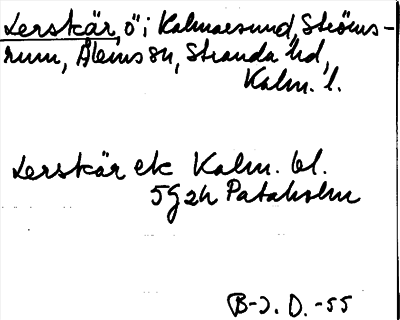 Lerskär, ö i Kalmarsund, Ströms-
rum, Ålems sn, Stranda hd,
Kalm. l.
Lerskär ek Kalm. bl.
5G2h Pataholm
B-J. D. -55